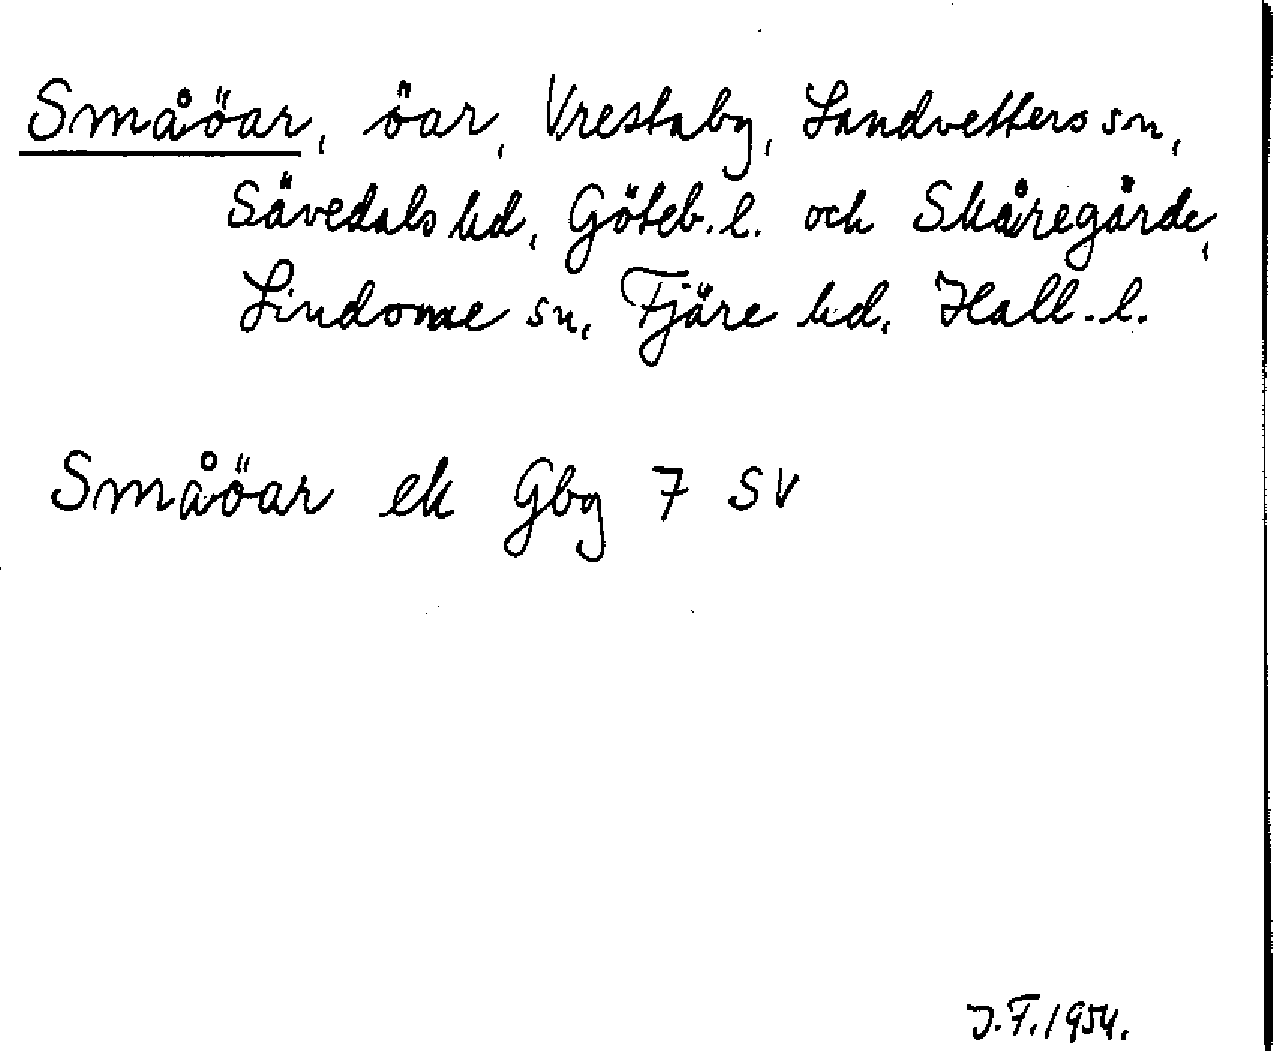 Småöar, öar, Vrestaby, Landvetters sn,
Sävedals hd, Göteb. l. och Skåregärde,
Lindome sn, Fjäre hd, Hall. l.
Småöar ek Gbg 7 SV
J.F. 1954.